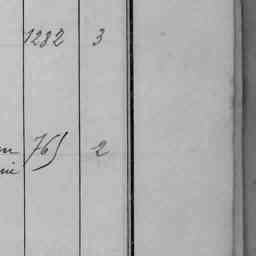 1282 3
765 2